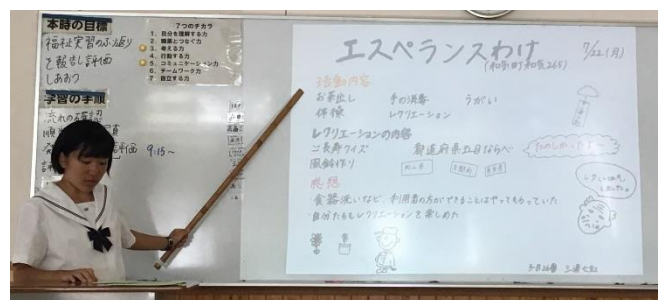 本時の目標
福祉実習のふり返り
を報告し評価
しあおう
学習の手順
流れの確認
9:15~
7つのチカラ
1. 自分を理解する力
2. 職業とつなぐ力
3. 考える力
4. 行動する力
5. コミュニケーション力
6. チームワーク力
7. 自立する力
エスペランスわけ
7/22(月)
(和気町和気265)
活動内容
お茶出し 手の消毒 うがい
体操 レクリエーション
レクリエーションの内容
ご長寿クイズ 都道府県五目ならべ
風鈴作り
感想
・食器洗いなど、利用者の方ができることはやってもらっていた
・自分たちもレクリエーションを楽しめた